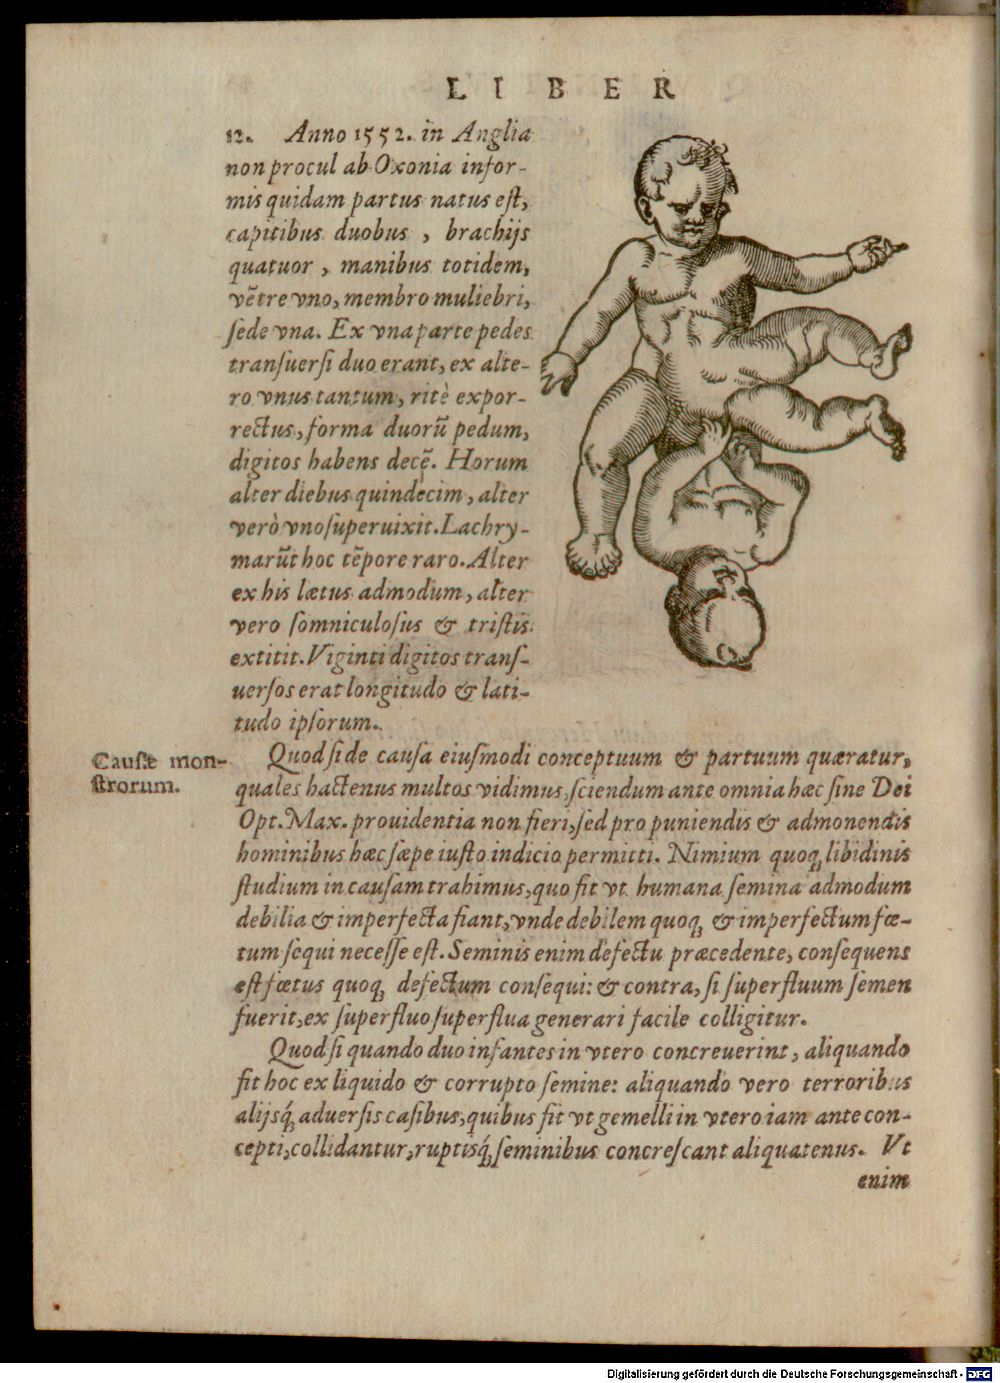 LIBER
12. Anno 1552. in Anglia
non procul ab Oxonia infor-
mis quidam partus natus eſt,
capitibus duobus, brachijs
quatuor, manibus totidem,
vẽtre vno, membro muliebri,
ſede vna. Ex vna parte pedes
tranſuerſi duo erant, ex alte-
ro vnus tantum, ritè expor-
rectus, forma duorũ pedum,
digitos habens decẽ. Horum
alter diebus quindecim, alter
verò vno ſuperuixit. Lachry-
marũt hoc tẽpore raro. Alter
ex his lætus admodum, alter
vero ſomniculoſus & triſtis
extitit. Viginti digitos tranſ-
uerſos erat longitudo & lati-
tudo ipſorum.
Cauſæ mon-
ſtrorum.
Quod ſi de cauſa eiuſmodi conceptuum & partuum quæratur,
quales hactenus multos vidimus, ſciendum ante omnia hæc ſine Dei
Opt. Max. prouidentia non fieri, ſed pro puniendis & admonendis
hominibus hæc ſæpe iuſto indicio permitti. Nimium quoq; libidinis
ſtudium in cauſam trahimus, quo fit vt humana ſemina admodum
debilia & imperfecta fiant, vnde debilem quoq; & imperfectum fœ-
tum ſequi neceſſe eſt. Seminis enim defectu præcedente, conſequens
eſt fœtus quoq; defectum conſequi: & contra, ſi ſuperfluum ſemen
fuerit, ex ſuperfluo ſuperflua generari facile colligitur.
Quod ſi quando duo infantes in vtero concreuerint, aliquando
fit hoc ex liquido & corrupto ſemine: aliquando vero terroribus
alijsq́; aduerſis caſibus, quibus fit vt gemelli in vtero iam ante con-
cepti, collidantur, ruptisq́; ſeminibus concreſcant aliquatenus. Vt
enim
Digitalisierung gefördert durch die Deutsche Forschungsgemeinschaft - DFG